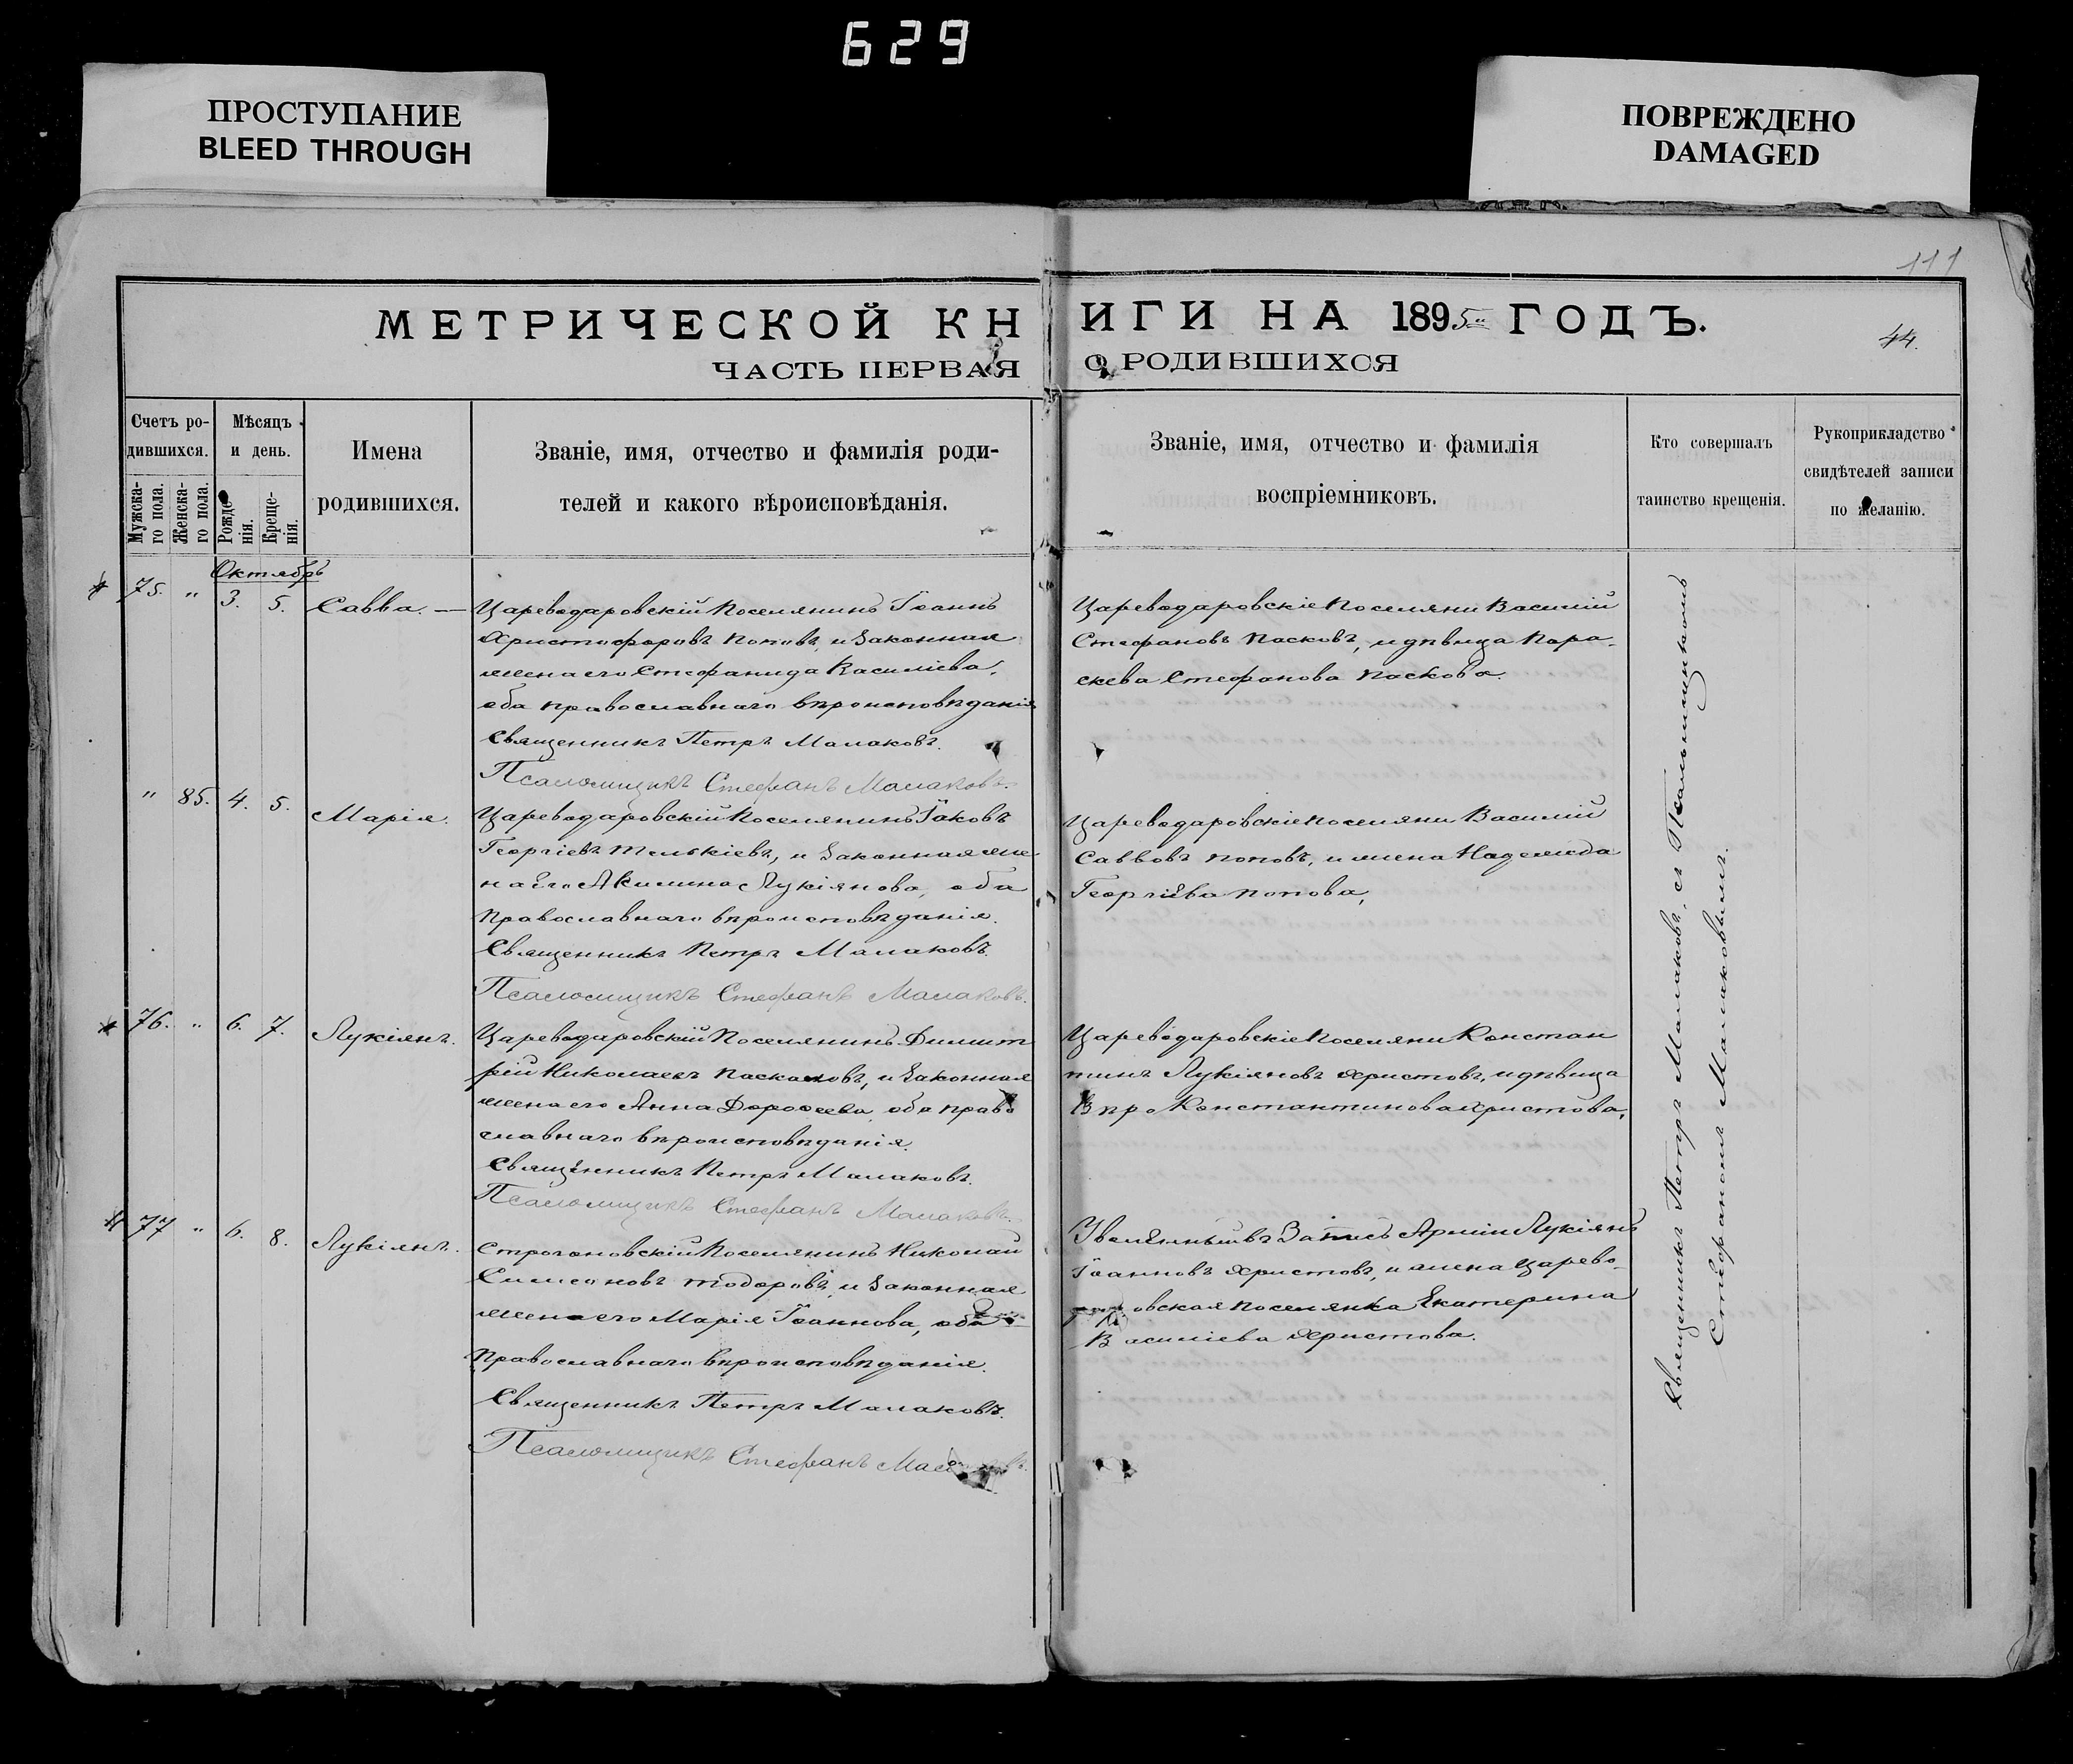 629
ПРОСТУПАНИЕ
BLEED THROUGH
ПОВРЕЖДЕНО
DAMAGED
111
МЕТРИЧЕСКОЙ КНИГИ НА 1895й ГОДЪ.
44.
ЧАСТЬ ПЕРВАЯ О РОДИВШИХСЯ
Счетъ ро-
дившихся.
Мужска-
го пола.
Женска-
го пола.
Мѣсяцъ
и день.
Рожде-
нія.
Креще-
нія.
Имена
родившихся.
Званіе, имя, отчество и фамилія роди-
телей и какого вѣроисповѣданія.
Званіе, имя, отчество и фамилія
воспріемниковъ.
Кто совершалъ
таинство крещенія.
Рукоприкладство
свидѣтелей записи
по желанію.
Октябрь
75. " 3. 5. Савва. —
Цареводаровскій Поселянинъ Іоаннъ
Христофоровъ Поповъ, и Законная
жена его Стефанида Василіева,
оба православнаго вѣроисповѣданія
Священникъ Петръ Малаковъ.
Псаломщикъ Стефанъ Малаковъ.
Цареводаровскіе Поселяни Василій
Стефановъ Пасковъ, и дѣвица Пара-
скева Стефанова Паскова.
" 85. 4. 5. Марія.
Цареводаровскій Поселянинъ Іаковъ
Георгіевъ Телькіевъ, и Законная же
на его Акилина Лукіянова, оба
Православнаго вѣроисповѣданія.
Священникъ Петръ Малаковъ.
Псаломщикъ Стефанъ Малаковъ.
Цареводаровскіе поселяни Василій
Саввовъ Поповъ, и жена Надежда
Георгіева Попова,
76. " 6. 7. Лукіянъ.
Цареводаровскій Поселянинъ Димит
рій Николаевъ Паскаловъ, и Законная
жена его Анна Дороѳеева, оба право
славнаго вѣроисповѣданія.
Священникъ Петръ Малаковъ.
Псаломщикъ Стефанъ Малаковъ.
Цареводаровскіе Поселяни Констан
тинъ Лукіяновъ Христовъ, и дѣвица
Вѣра Константинова Христова,
77 " 6. 8. Лукіянъ.
Строгановскій Поселянинъ Николай
Симеоновъ Тодоровъ, и Законная
жена его Марія Іоаннова, оба
Православнаго вѣроисповѣданія.
Священникъ Петръ Малаковъ.
Псаломщикъ Стефанъ Малаковъ.
Уволенный въ Запасъ Арміи Лукіянъ
Іоанновъ Христовъ, и жена Царево-
овская поселянка Екатерина
Василіева Христова.
Священникъ Петръ Малаковъ, съ Псаломщикомъ
Стефаномъ Малаковымъ.